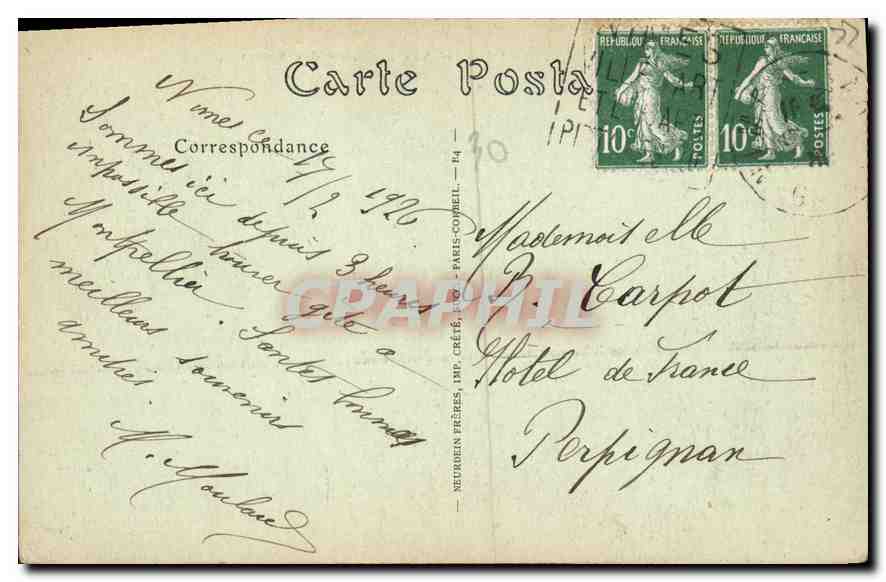 Carte Posta
Correspondance
Nîmes ce 17/2 1926
Sommes ici depuis 3 heures
impossible trouver gîte à
Montpellier. Santés bonnes
meilleurs souvenirs
amitiés
M.
NEURDEIN FRÈRES, IMP. CRÉTÉ, SUCC. - PARIS-CORBEIL. - E4
30
REPUBLIQUE FRANÇAISE
10c POSTES
REPUBLIQUE FRANÇAISE
10c POSTES
Mademoiselle
B. Carpot
Hôtel de France
Perpignan
CPAPHIL